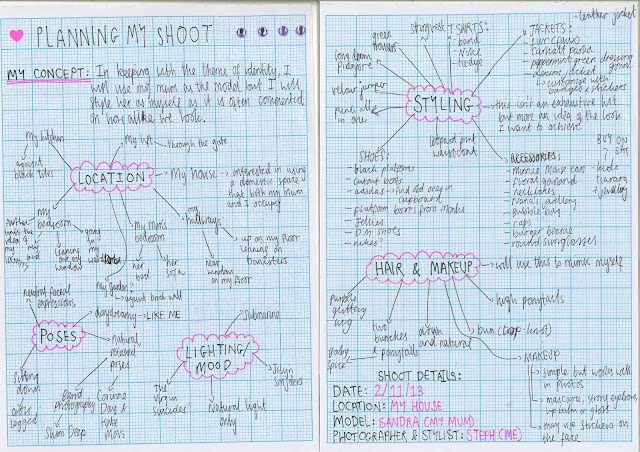 PLANNING MY SHOOT
MY CONCEPT: In keeping with the theme of identity, I
will use my mum as the model but I will
style her as myself as it is often commented
on how alike we look.
LOCATION
My kitchen
against
black tiles
My loft
through the gate
My house
interested in using
a domestic space
that both my mum
and I occupy
my
hallways
up on my floor
leaning on
banisters
near
window
on my floor
My Mum's
bedroom
her
bed
her
sofa
My garden?
against brick wall
my
bedroom
my
bed
leaning
out my
window
going
in my
wardrobe
POSES
neutral facial
expressions
daydreamy
LIKE ME
natural
relaxed
poses
Corinne
Day &
Kate
Moss
Band
photography
Swim Deep
sitting
down
cross
legged
LIGHTING/
MOOD
Submarine
Jolyn
Snijders
Natural light
only
The
Virgin
Suicides
STYLING
green
trousers
long denim
pinafore
velour jumper
T SHIRTS:
- band
- tie-dye
JACKETS:
- leather jacket
- fur (faux)
- carhartt parka
- peppermint green dressing gown
- denim jacket
customise with
badges & stickers
leopard print
waistcoat
this isn't an exhaustive list
but more an idea of the look
I want to achieve
SHOES:
- black platforms
- cutout boots
- adidas
find old ones in
cupboard
- platform boots from Monki
- jellies
- D.M shoes
- nikes?
ACCESSORIES:
- minnie mouse ears
- floral garland
- necklaces
- Nana's jewellery
- bubble bag
- caps
- burger beanie
- round sunglasses
HAIR & MAKEUP
will use this to mimic myself
high ponytails
bun (top-knot)
down
and natural
two
bunches
ponytails
baby
spice
purple
glittery
wig
MAKEUP
simple but works well
in photos
mascara, strong eyebrows,
lip balm or gloss
may use stickers on
the face
SHOOT DETAILS:
DATE: 2/11/13
LOCATION: MY HOUSE
MODEL: SANDRA (MY MUM)
PHOTOGRAPHER & STYLIST: STEPH (ME)